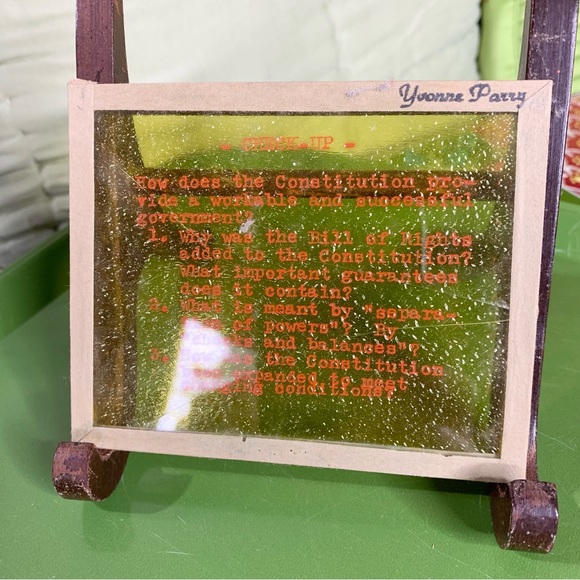 Yvonne Parry
- CHECK-UP -
How does the Constitution pro-
vide a workable and successful
government?
1. Why was the Bill of Rights
added to the Constitution?
What important guarantees
does it contain?
2. What is meant by "separa-
tion of powers"? By
"checks and balances"?
3. How the Constitution
been expanded to meet
changing conditions?